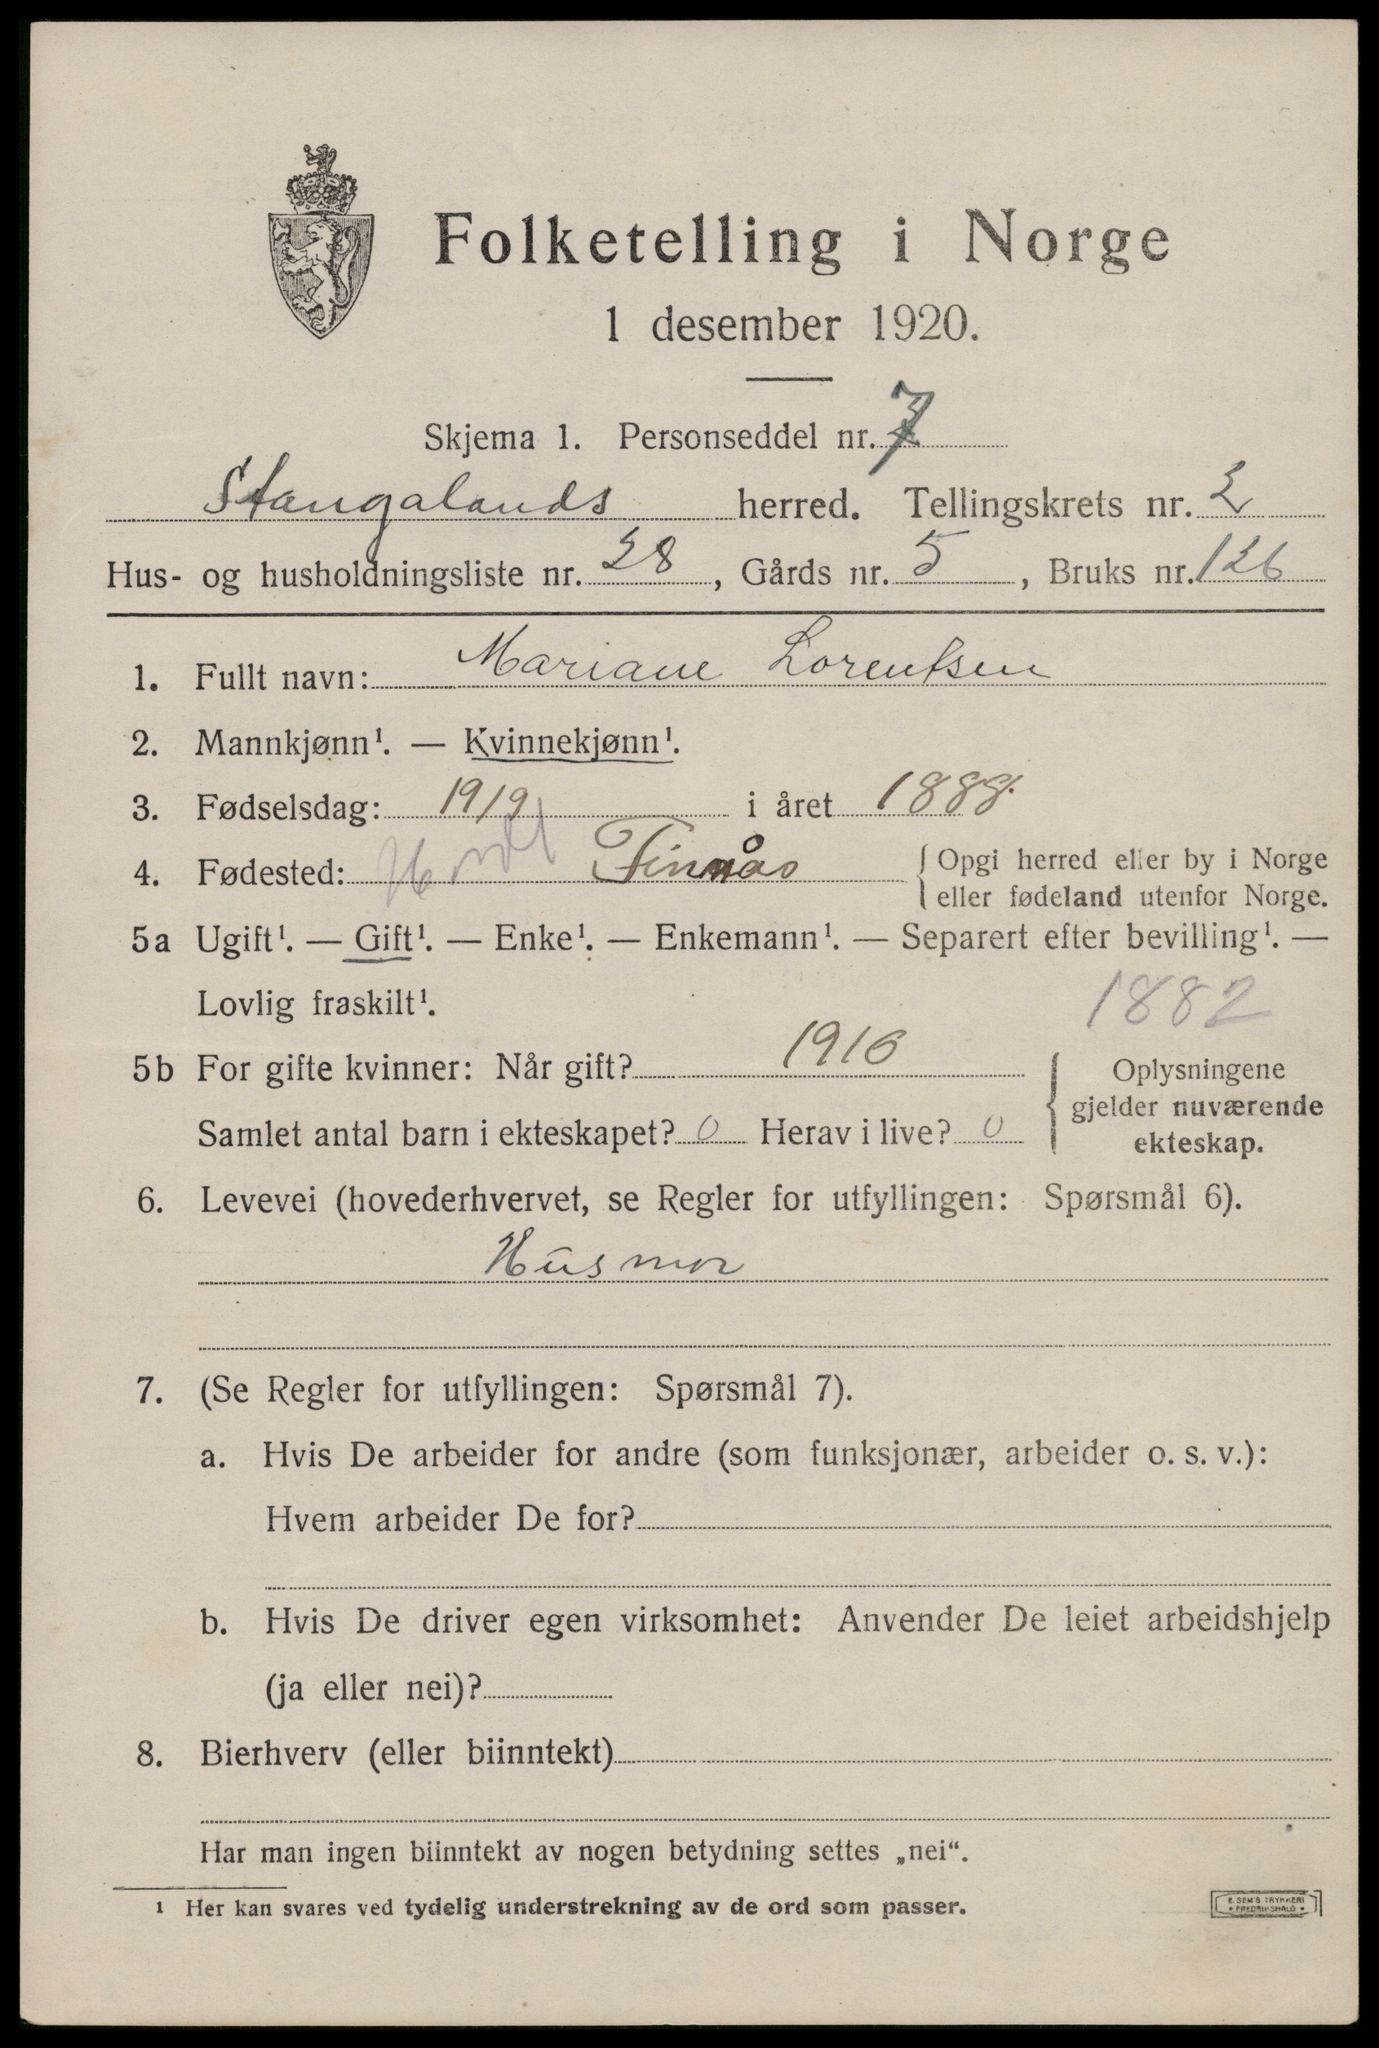 Folketelling i Norge
1 desember 1920.
Skjema 1. Personseddel nr. 7
Stangalands herred. Tellingskrets nr. 2
Hus- og husholdningsliste nr. 28, Gårds nr. 5, Bruks nr. 126
1. Fullt navn: Mariane Lorentsen
2. Mannkjønn¹. — Kvinnekjønn¹.
3. Fødselsdag: 19/9 i året 1888.
4. Fødested: Hordl Finnås {Opgi herred eller by i Norge
eller fødeland utenfor Norge.
5a Ugift¹. — Gift¹. — Enke¹. — Enkemann¹. — Separert efter bevilling¹. —
Lovlig fraskilt¹. 1882
5b For gifte kvinner: Når gift? 1916 Oplysningene
gjelder nuværende
Samlet antal barn i ekteskapet? 0 Herav i live? 0 ekteskap.
6. Levevei (hovederhvervet, se Regler for utfyllingen: Spørsmål 6).
Husmor
7. (Se Regler for utfyllingen: Spørsmål 7).
a. Hvis De arbeider for andre (som funksjonær, arbeider o. s. v.):
Hvem arbeider De for?
b. Hvis De driver egen virksomhet: Anvender De leiet arbeidshjelp
(ja eller nei)?
8. Bierhverv (eller biinntekt)
Har man ingen biinntekt av nogen betydning settes „nei“.
¹ Her kan svares ved tydelig understrekning av de ord som passer.
E. SEM'S TRYKKERI
FREDRIKSHALD